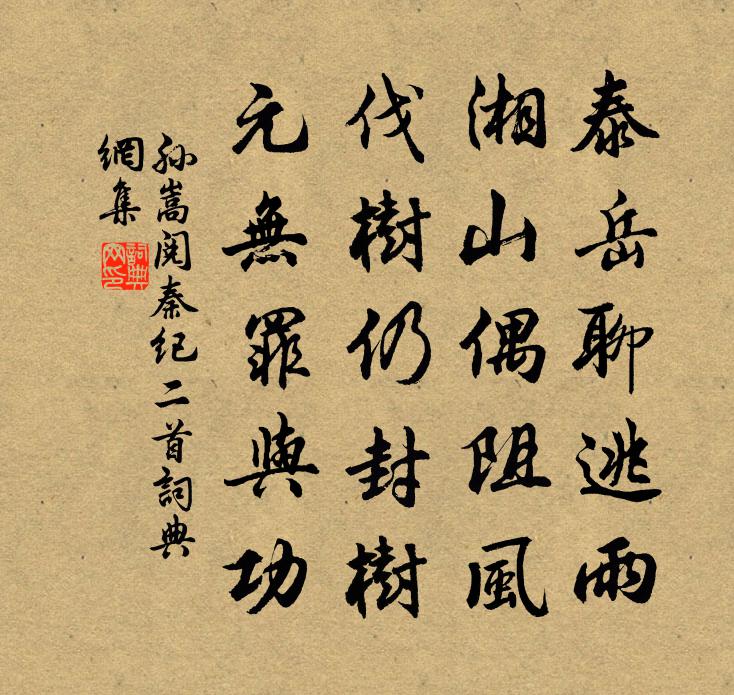 泰岳聊逃雨
湘山偶阻風
伐樹仍封樹
元無罪與功
孫嵩閱秦紀二首詞典
網集
詞典
网印